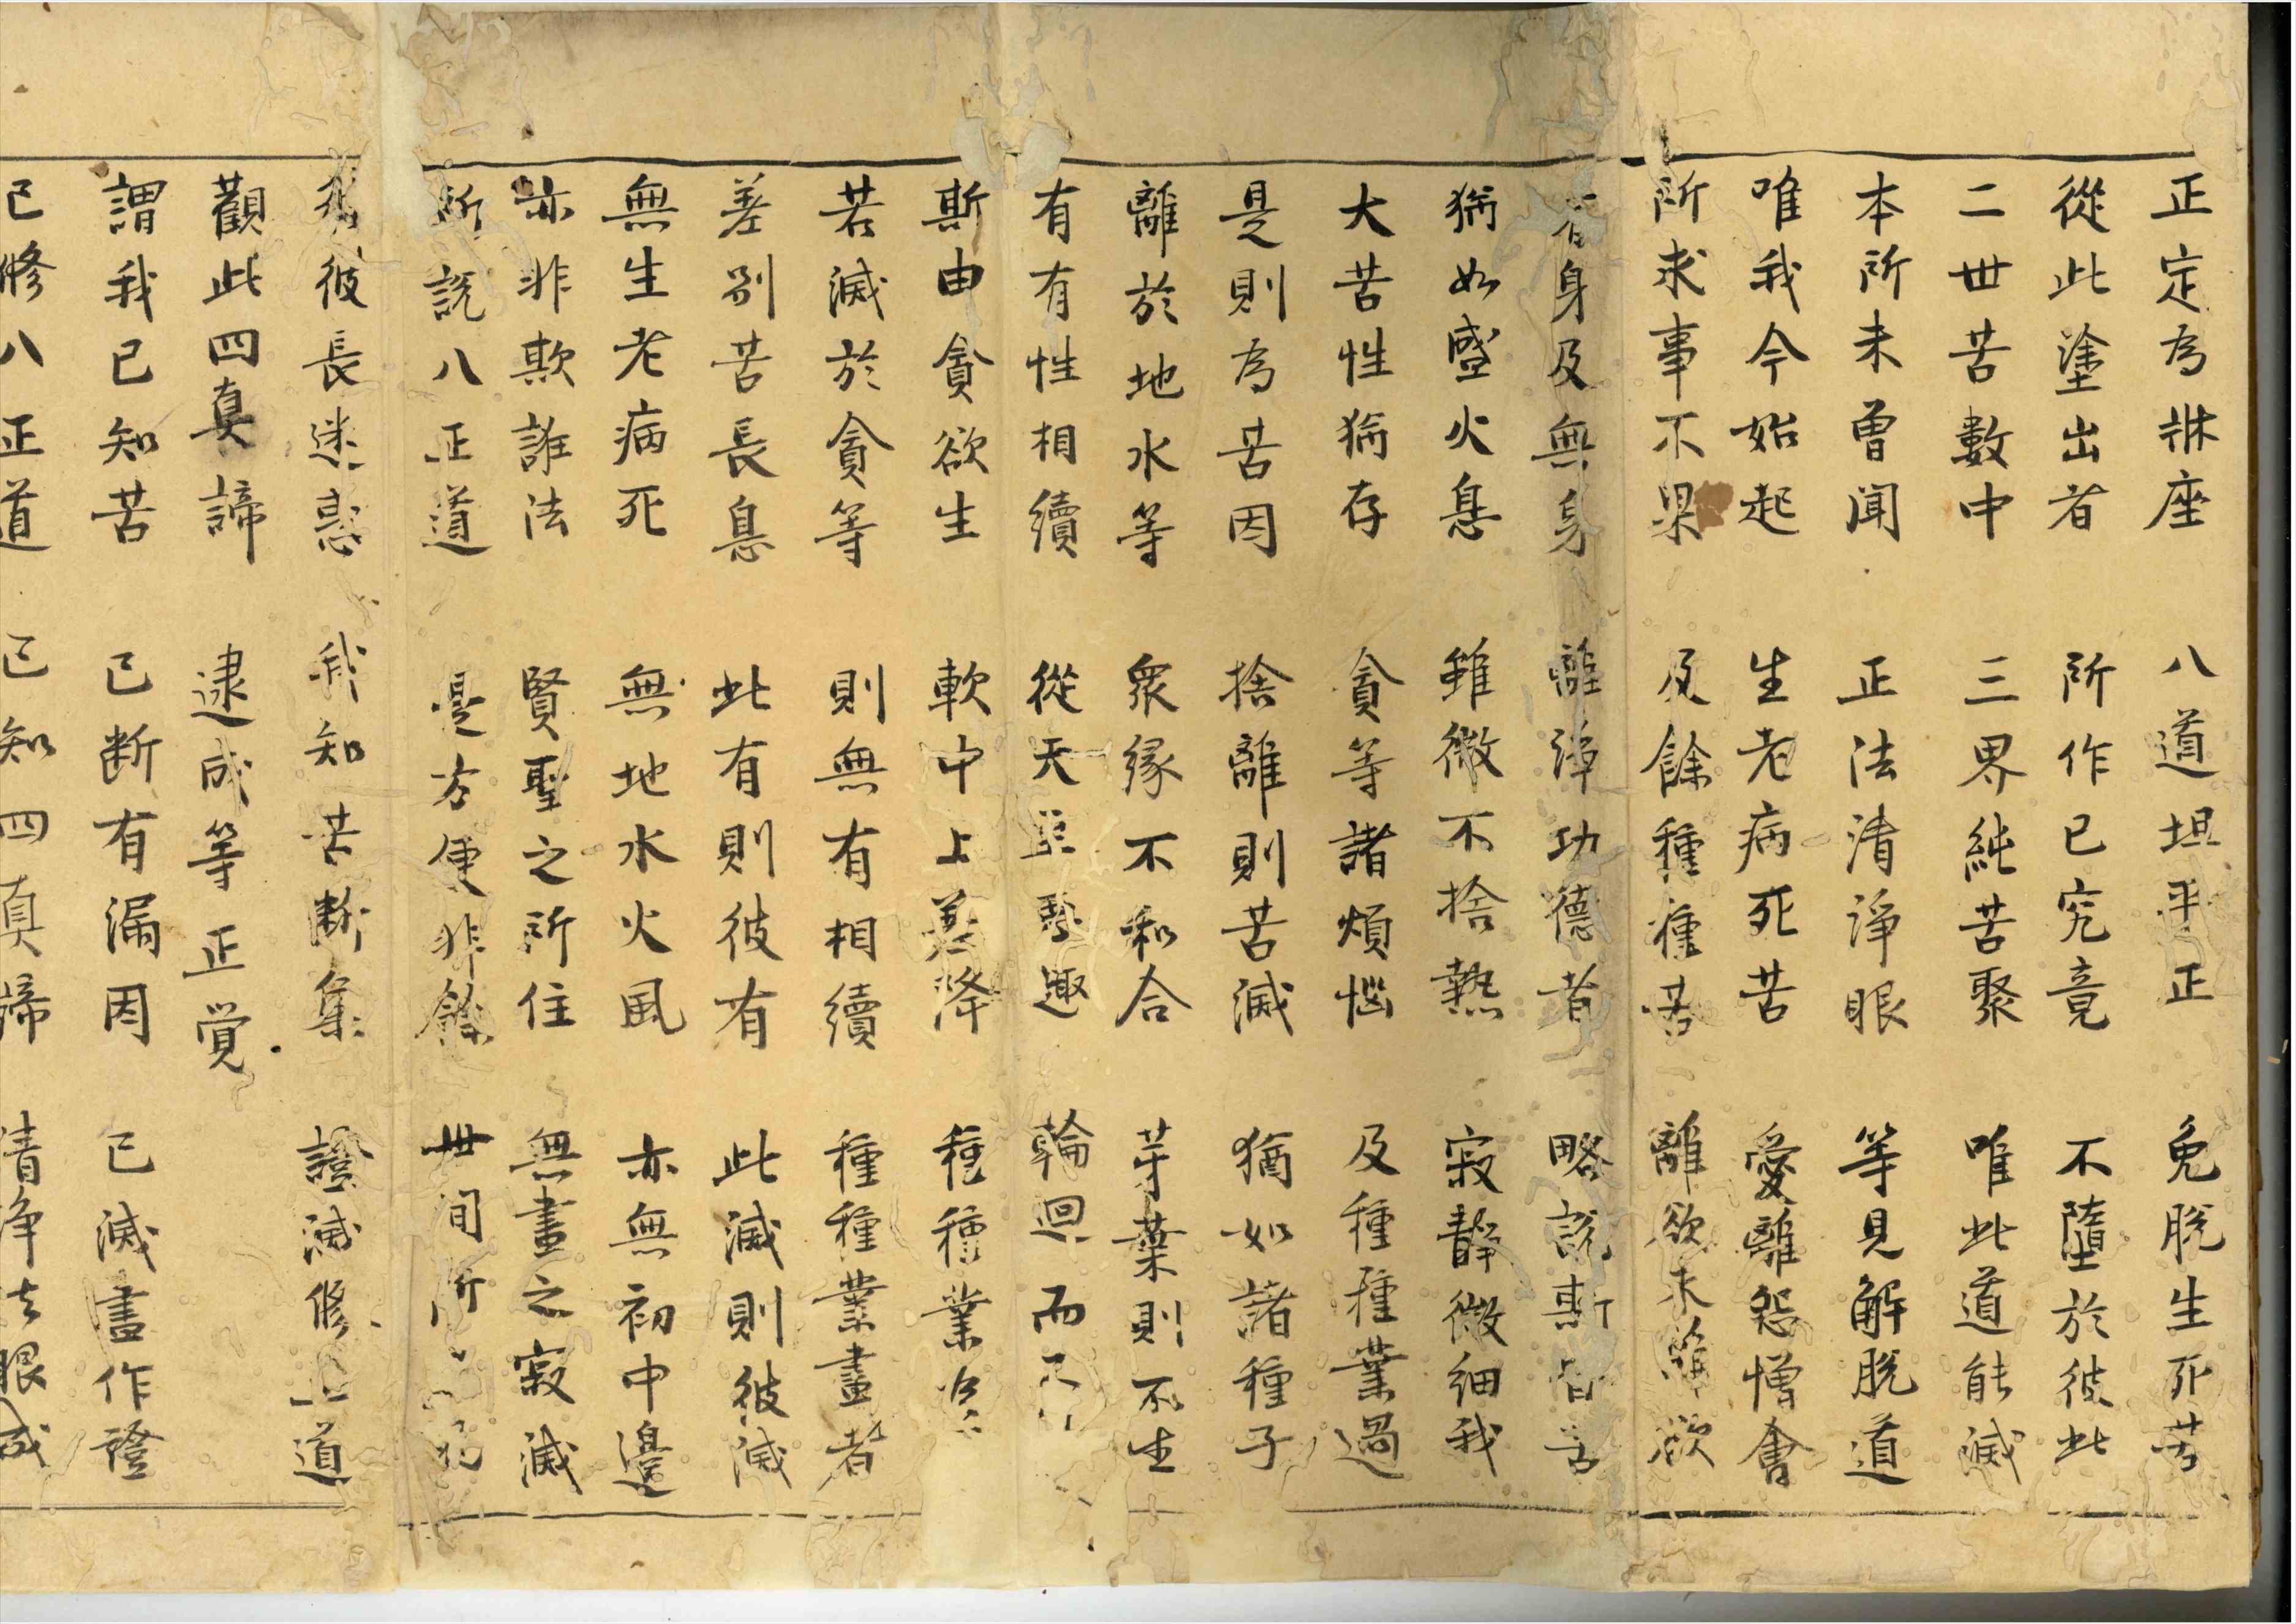 正定為牀座 八道坦平正 免脫生死苦
從此塗出者 所作已究竟 不墮於彼此
二世苦數中 三界純苦聚 唯此道能滅
本所未曾聞 正法清淨眼 等見解脫道
唯我今始起 生老病死苦 愛離怨憎會
所求事不果 及餘種種苦 離欲未離欲
有身及無身 離淨功德者 略說斯皆苦
猶如盛火息 雖微不捨熱 寂靜微細我
大苦性猶存 貪等諸煩惱 及種種業過
是則為苦因 捨離則苦滅 猶如諸種子
離於地水等 衆緣不和合 芽葉則不生
有有性相續 從天至惡趣 輪迴而不
斯由貪欲生 軟中上差降 種種業
若滅於貪等 則無有相續 種種業盡者
差別苦長息 此有則彼有 此滅則彼滅
無生老病死 無地水火風 亦無初中邊
亦非欺誑法 賢聖之所住 無盡之寂滅
所說八正道 是方便非餘 世間所
彼長迷惑 我知苦斷集 證滅修正道
觀此四真諦 逮成等正覚
謂我已知苦 已断有漏因 已滅盡作證
已修八正道 已知四真諦 清淨法眼成